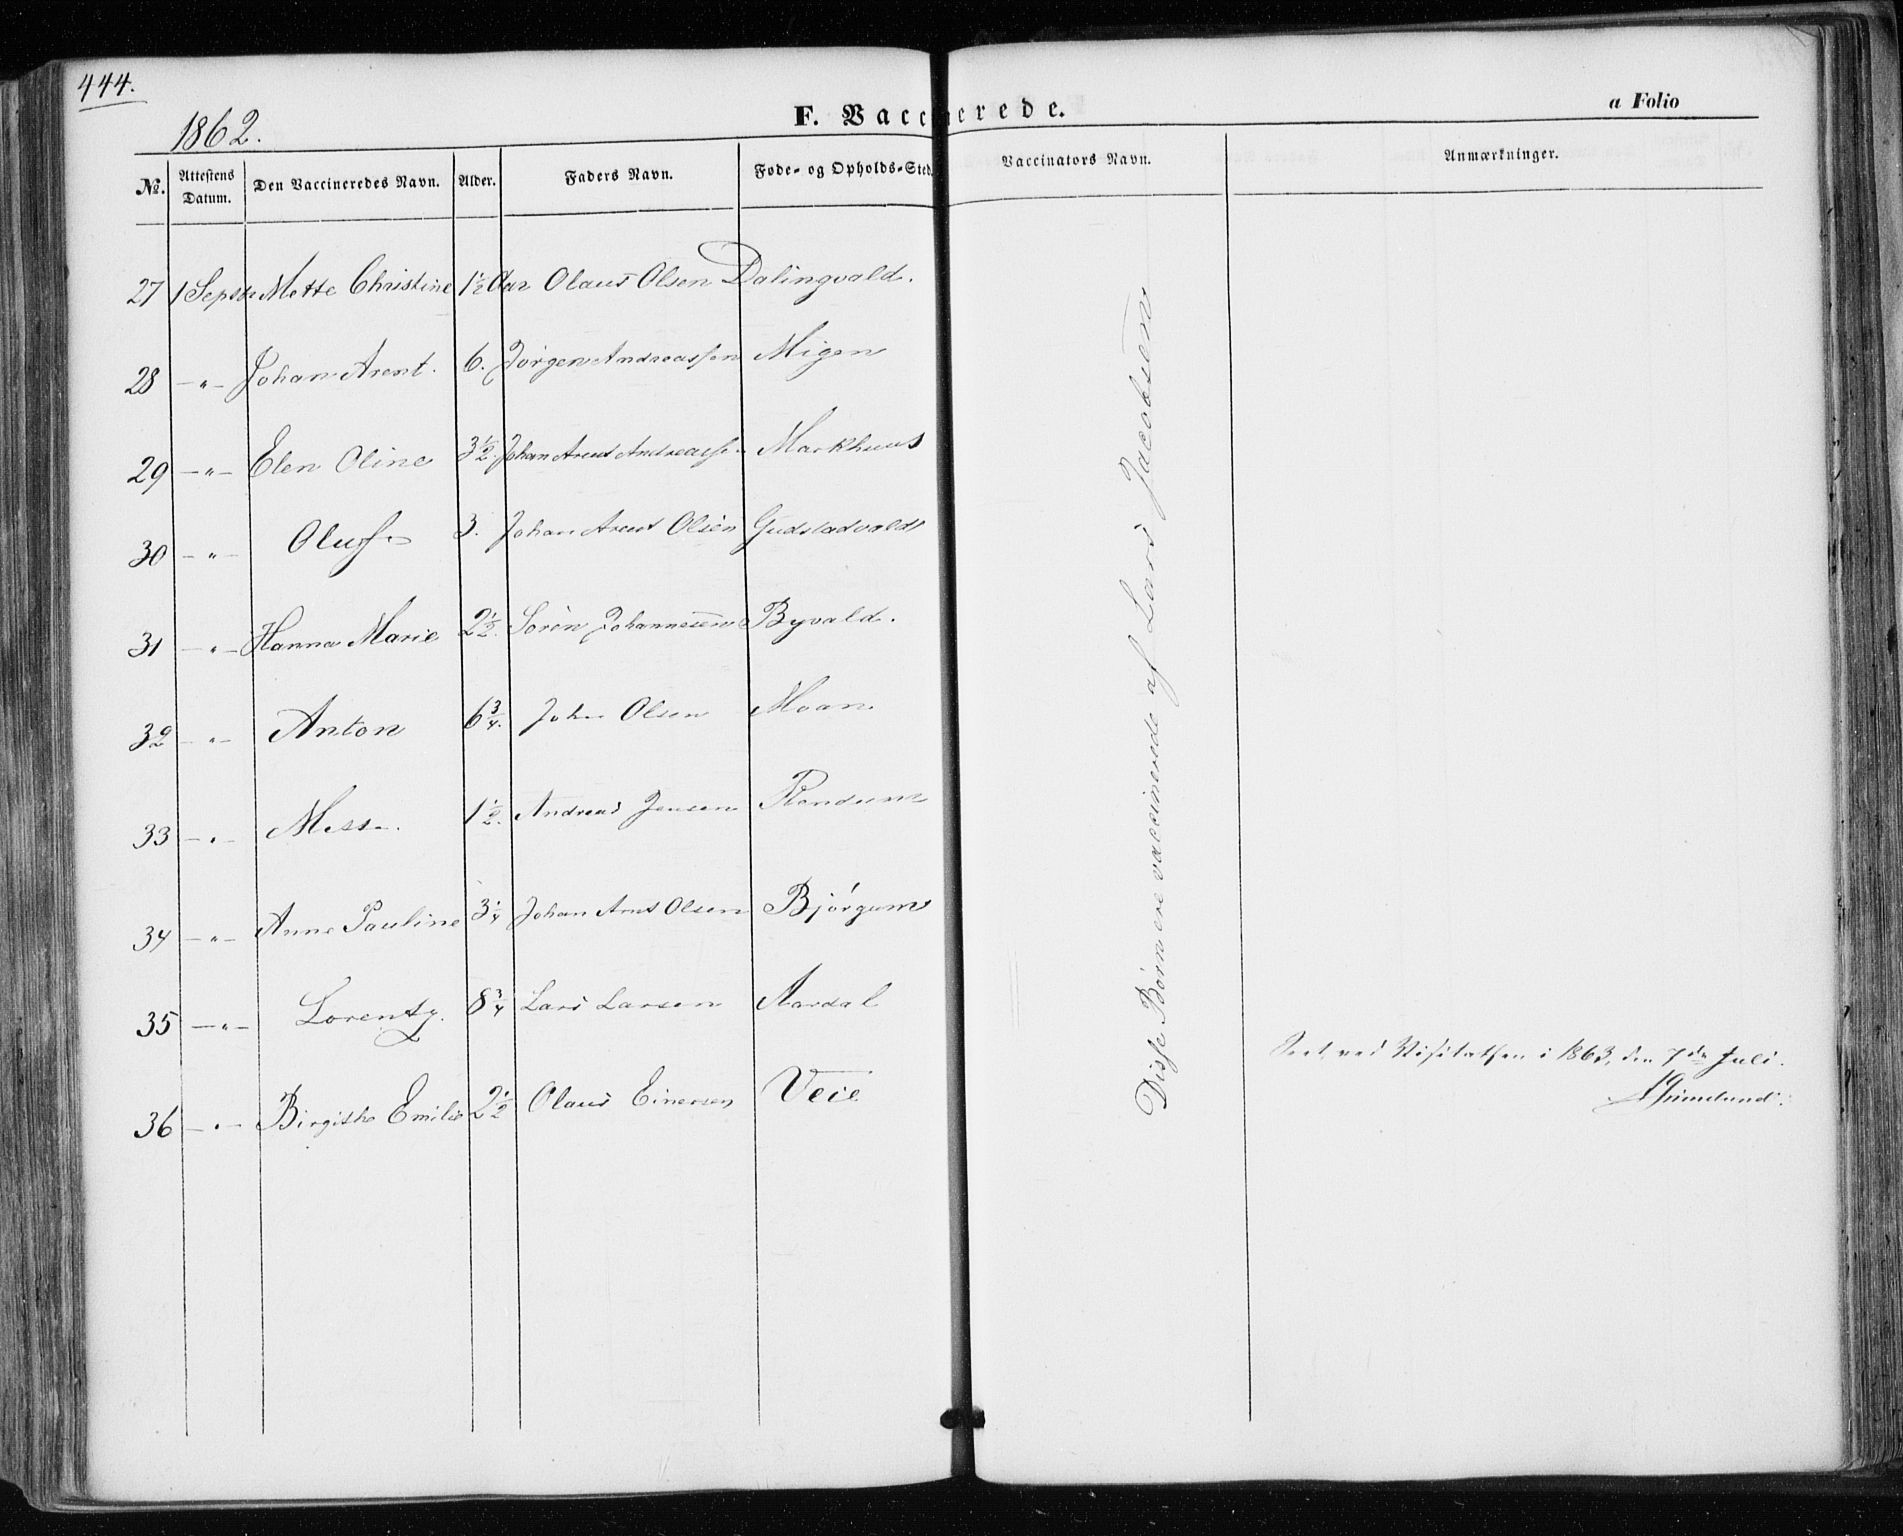 444.
1862.
F. Vaccinerede.
a Folio
No. Attestens Datum. Den Vaccineredes Navn. Alder. Faders Navn. Føde- og Opholds-Sted. Vaccinators Navn. Anmærkninger.
27 1 Septbr Mette Christine 1 1/2 Aar Olaus Olsen Dalingvald.
28 -"- Johan Arent. 6. Jørgen Andreassen Migen
29 -"- Elen Oline 3 1/2. Johan Arent Andreass. Markhuus
30 -"- Oluf 3. Johan Arent Olsen Gudstadvald
31 -"- Hanna Marie 2 1/2. Søren Johannesen Byvald.
32 -"- Anton 6 3/4. Johan Olsen Moan
33 -"- 1 1/2. Andreas Jensen
34 -"- Anne Pauline 3 1/4 Johan Arnt Olsen Bjørgum
35 -"- Lorentz. 8 3/4 Lars Larsen Aardal
36 -"- Birgithe Emilie 2 1/2 Olaus Einersen Veie
Disse Børn ere vaccinerede af Lars Jacobsen
Seet ved Visitatsen i 1863, den 7de Juli.
Grimelund.